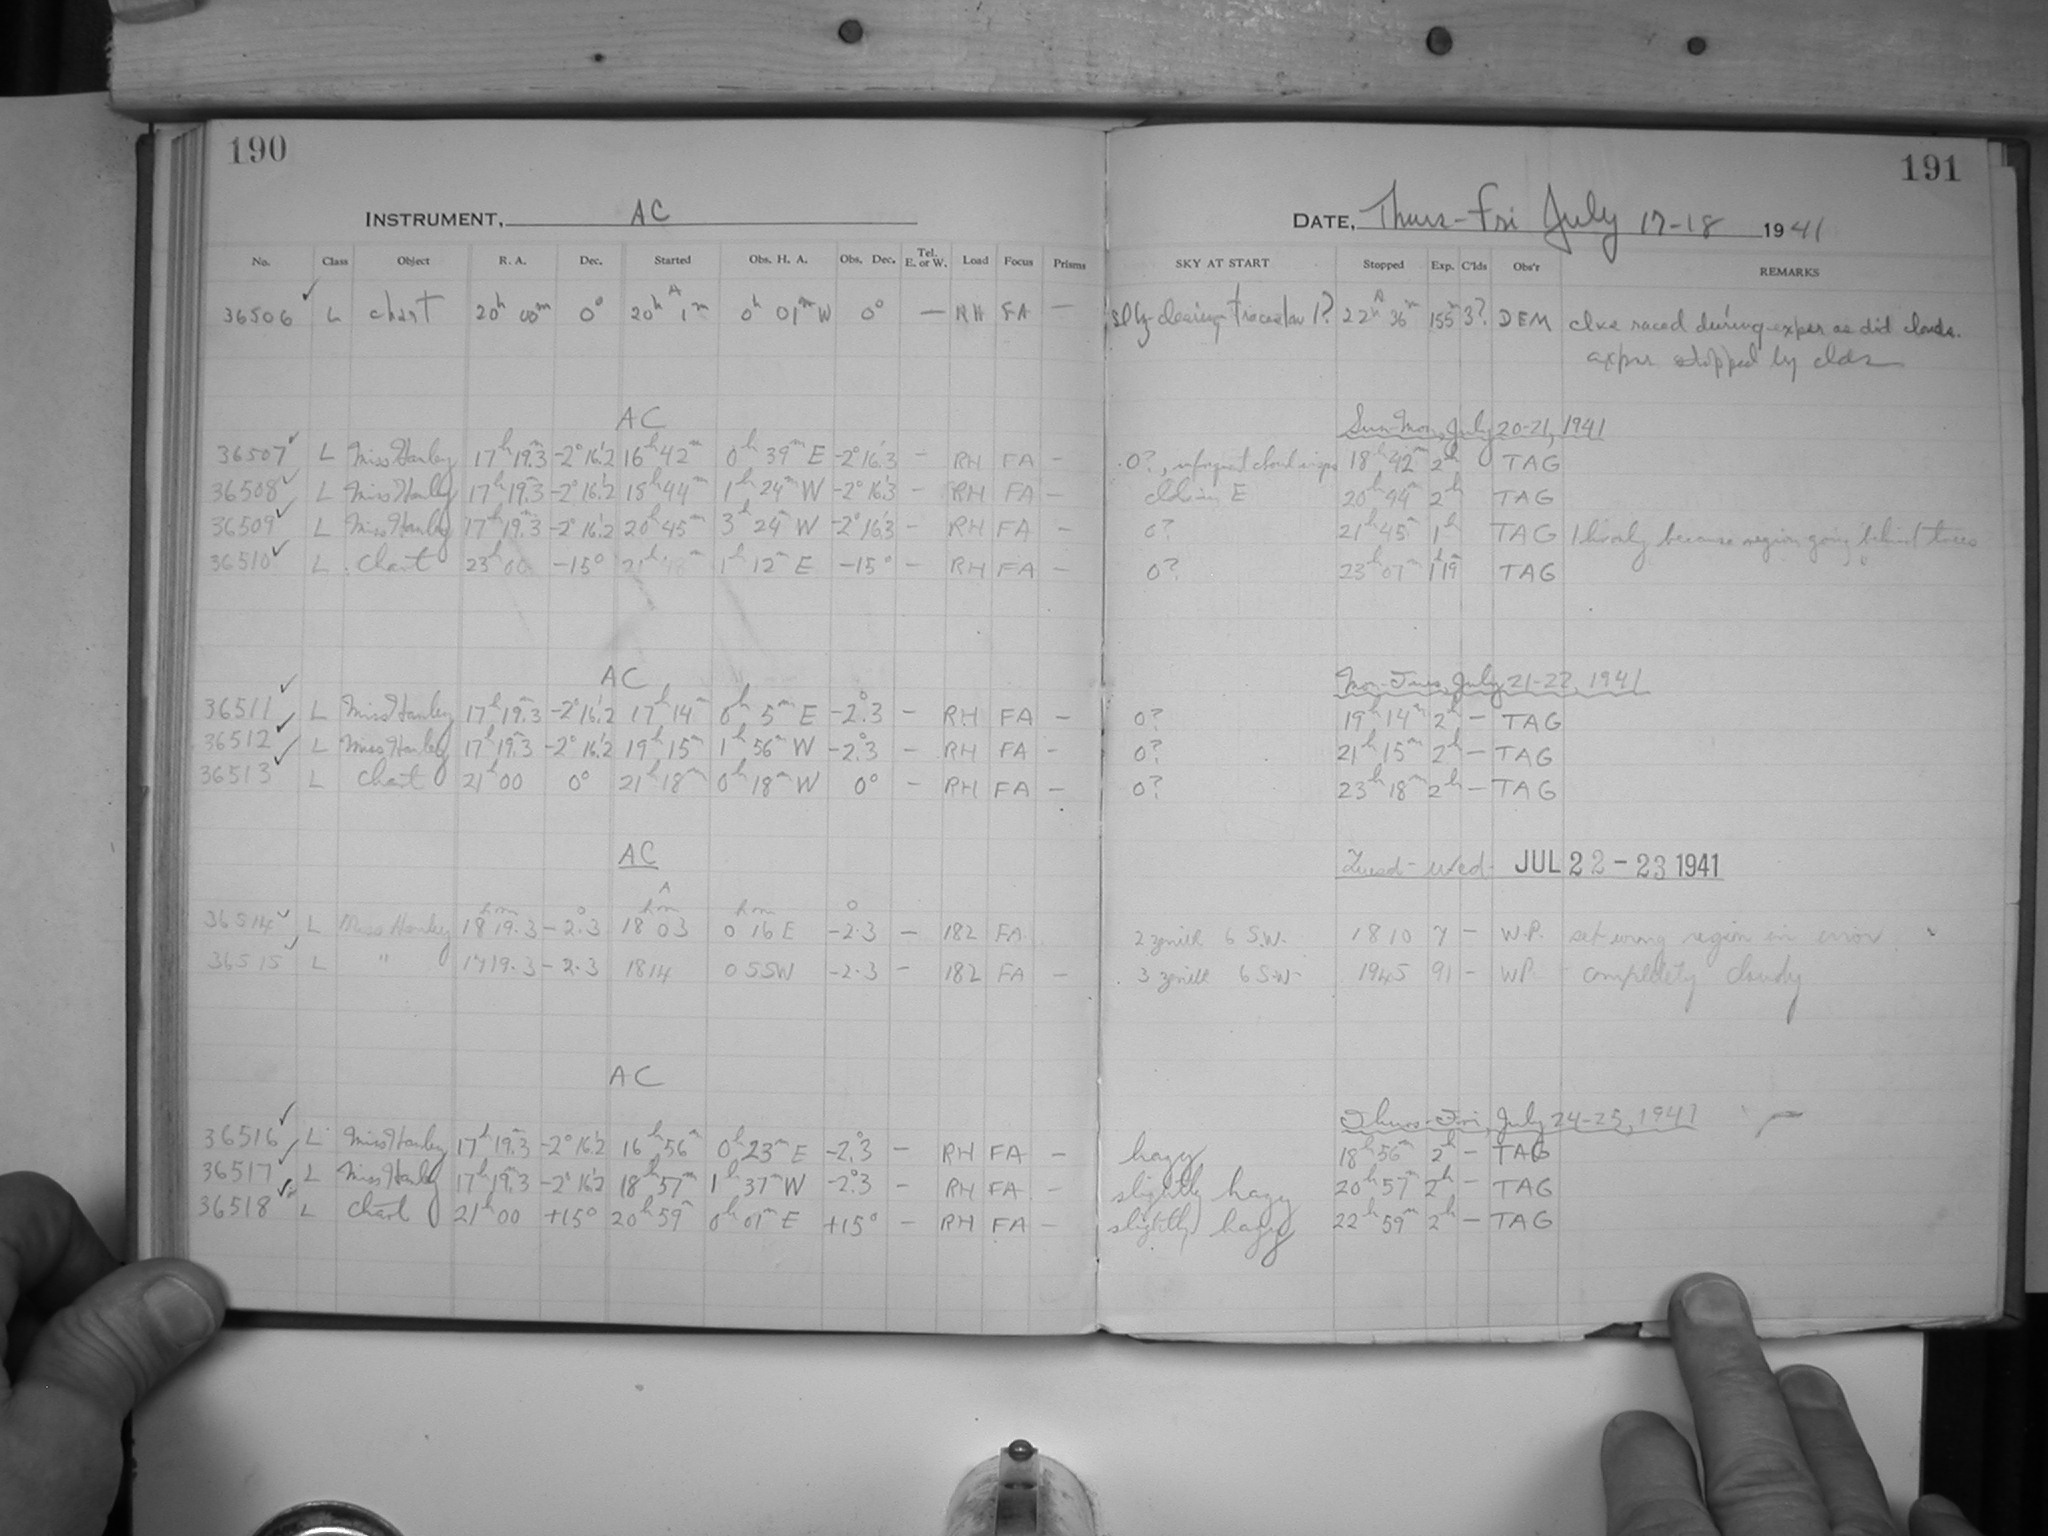 190
191
INSTRUMENT, AC
DATE, Thurs-Fri July 17-18 1941
No. Class Object R. A. Dec. Started Obs. H. A. Obs. Dec. Tel. E. or W. Load Focus Prisms SKY AT START Stopped Exp. C'lds Obs'r REMARKS
36506 ✓ L chart 20h 00m 0° 20h A 1m 0h 01m W 0° — RH FA — 1? 22h A 36m 155m 3? DEM raced during expos as did clouds.
stopped by clds
AC Sun-Mon, July 20-21, 1941
36507 ✓ L Miss Hanley 17h 19m.3 -2° 16'.2 16h 42m 0h 39m E -2° 16'.3 - RH FA - 0?, infrequent cloud wisps 18h 42m 2h TAG
36508 ✓ L Miss Hanley 17h 19m.3 -2° 16'.2 18h 44m 1h 24m W -2° 16'.3 - RH FA - E 20h 44m 2h TAG
36509 ✓ L Miss Hanley 17h 19m.3 -2° 16'.2 20h 45m 3h 24m W -2° 16'.3 - RH FA - 0? 21h 45m 1h TAG 1 hr only because region going behind trees
36510 ✓ L chart 23h 00 -15° 21h 48m 1h 12m E -15° - RH FA - 0? 23h 07m 1h 19m TAG
AC Mon-Tues, July 21-22, 1941
36511 ✓ L Miss Hanley 17h 19m.3 -2° 16'.2 17h 14m 0h 5m E -2°.3 - RH FA - 0? 19h 14m 2h - TAG
36512 ✓ L Miss Hanley 17h 19m.3 -2° 16'.2 19h 15m 1h 56m W -2°.3 - RH FA - 0? 21h 15m 2h - TAG
36513 ✓ L chart 21h 00 0° 21h 18m 0h 18m W 0° - RH FA - 0? 23h 18m 2h - TAG
AC Tuesd-Wed- JUL 22-23 1941
36514 ✓ L Miss Hanley 18h 19m.3 -2°.3 18h A 03m 0h 16m E -2°.3 - 182 FA 2 zenith 6 S.W. 1810 7 - W.P. set wrong region in error
36515 ✓ L " 1719.3 -2.3 1814 055W -2.3 - 182 FA - 3 zenith 6 S.W- 1945 91 - WP- completely cloudy
AC
Thurs-Fri, July 24-25, 1941
36516 ✓ L Miss Hanley 17h 19m.3 -2° 16'.2 16h 56m 0h 23m E -2°.3 - RH FA - hazy 18h 56m 2h - TAG
36517 ✓ L Miss Hanley 17h 19m.3 -2° 16'.2 18h 57m 1h 37m W -2°.3 - RH FA - slightly hazy 20h 57m 2h - TAG
36518 ✓ L chart 21h 00 +15° 20h 59m 0h 01m E +15° - RH FA - slightly hazy 22h 59m 2h - TAG